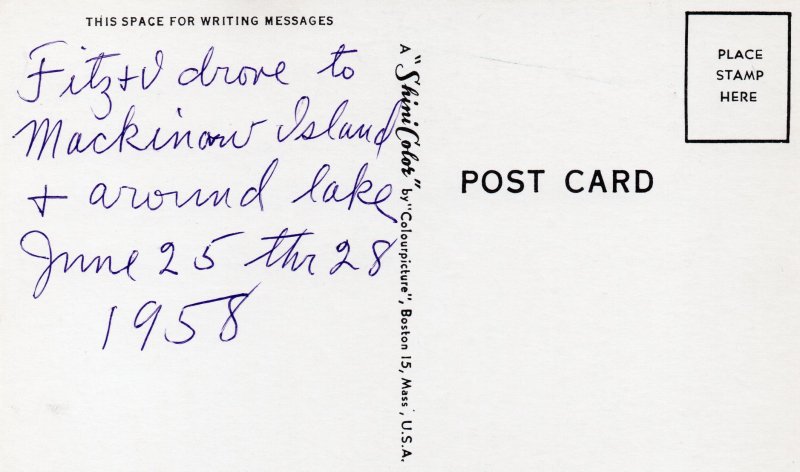 THIS SPACE FOR WRITING MESSAGES
Fitz + I drove to
Mackinaw Island
+ around lake
June 25 thr 28
1958
A "ShiniColor" by "Colourpicture", Boston 15, Mass., U.S.A.
POST CARD
PLACE
STAMP
HERE